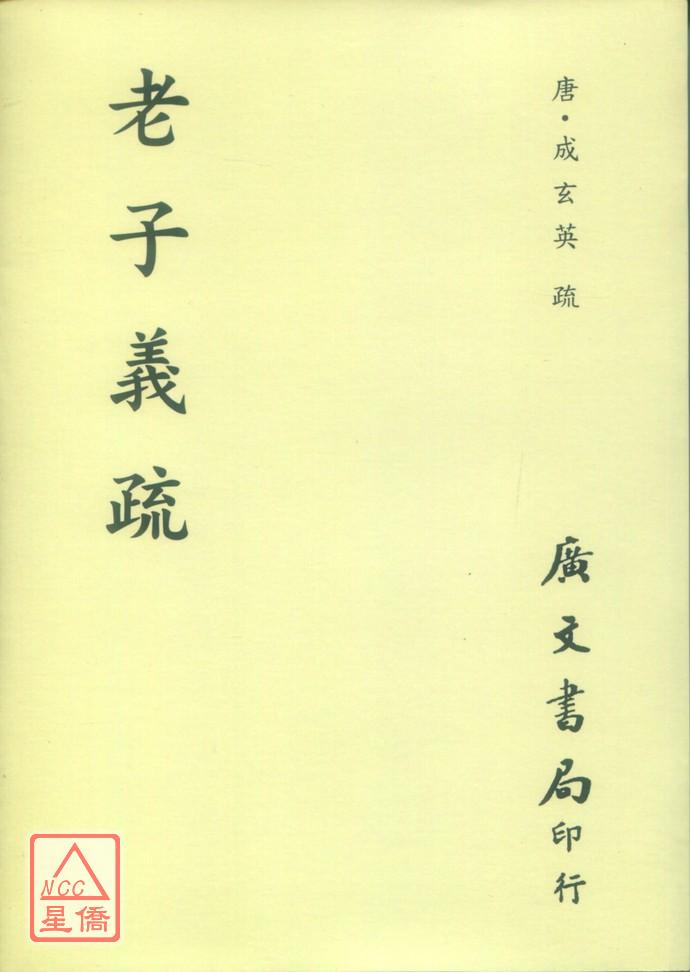 唐・成玄英 疏
老子義疏
廣文書局印行
NCC
星僑